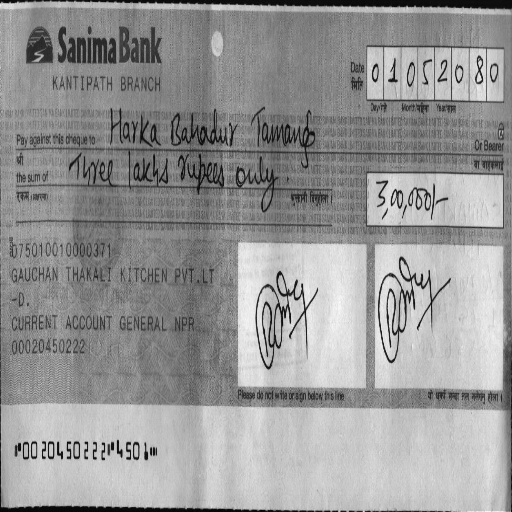 Sanima Bank
KANTIPATH BRANCH
Date
मिति
0 1 0 5 2 0 8 0
Day/गते Month/महिना Year/साल
Pay against this cheque to Harka Bahadur Tamang
Or Bearer
श्री
वा वाहकलाई
the sum of Three lakhs rupees only.
3,00,000/-
075010010000371
GAUCHAN THAKALI KITCHEN PVT.LT
-D.
CURRENT ACCOUNT GENERAL NPR
00020450222
Please do not write or sign below this line
"00 20450222"450